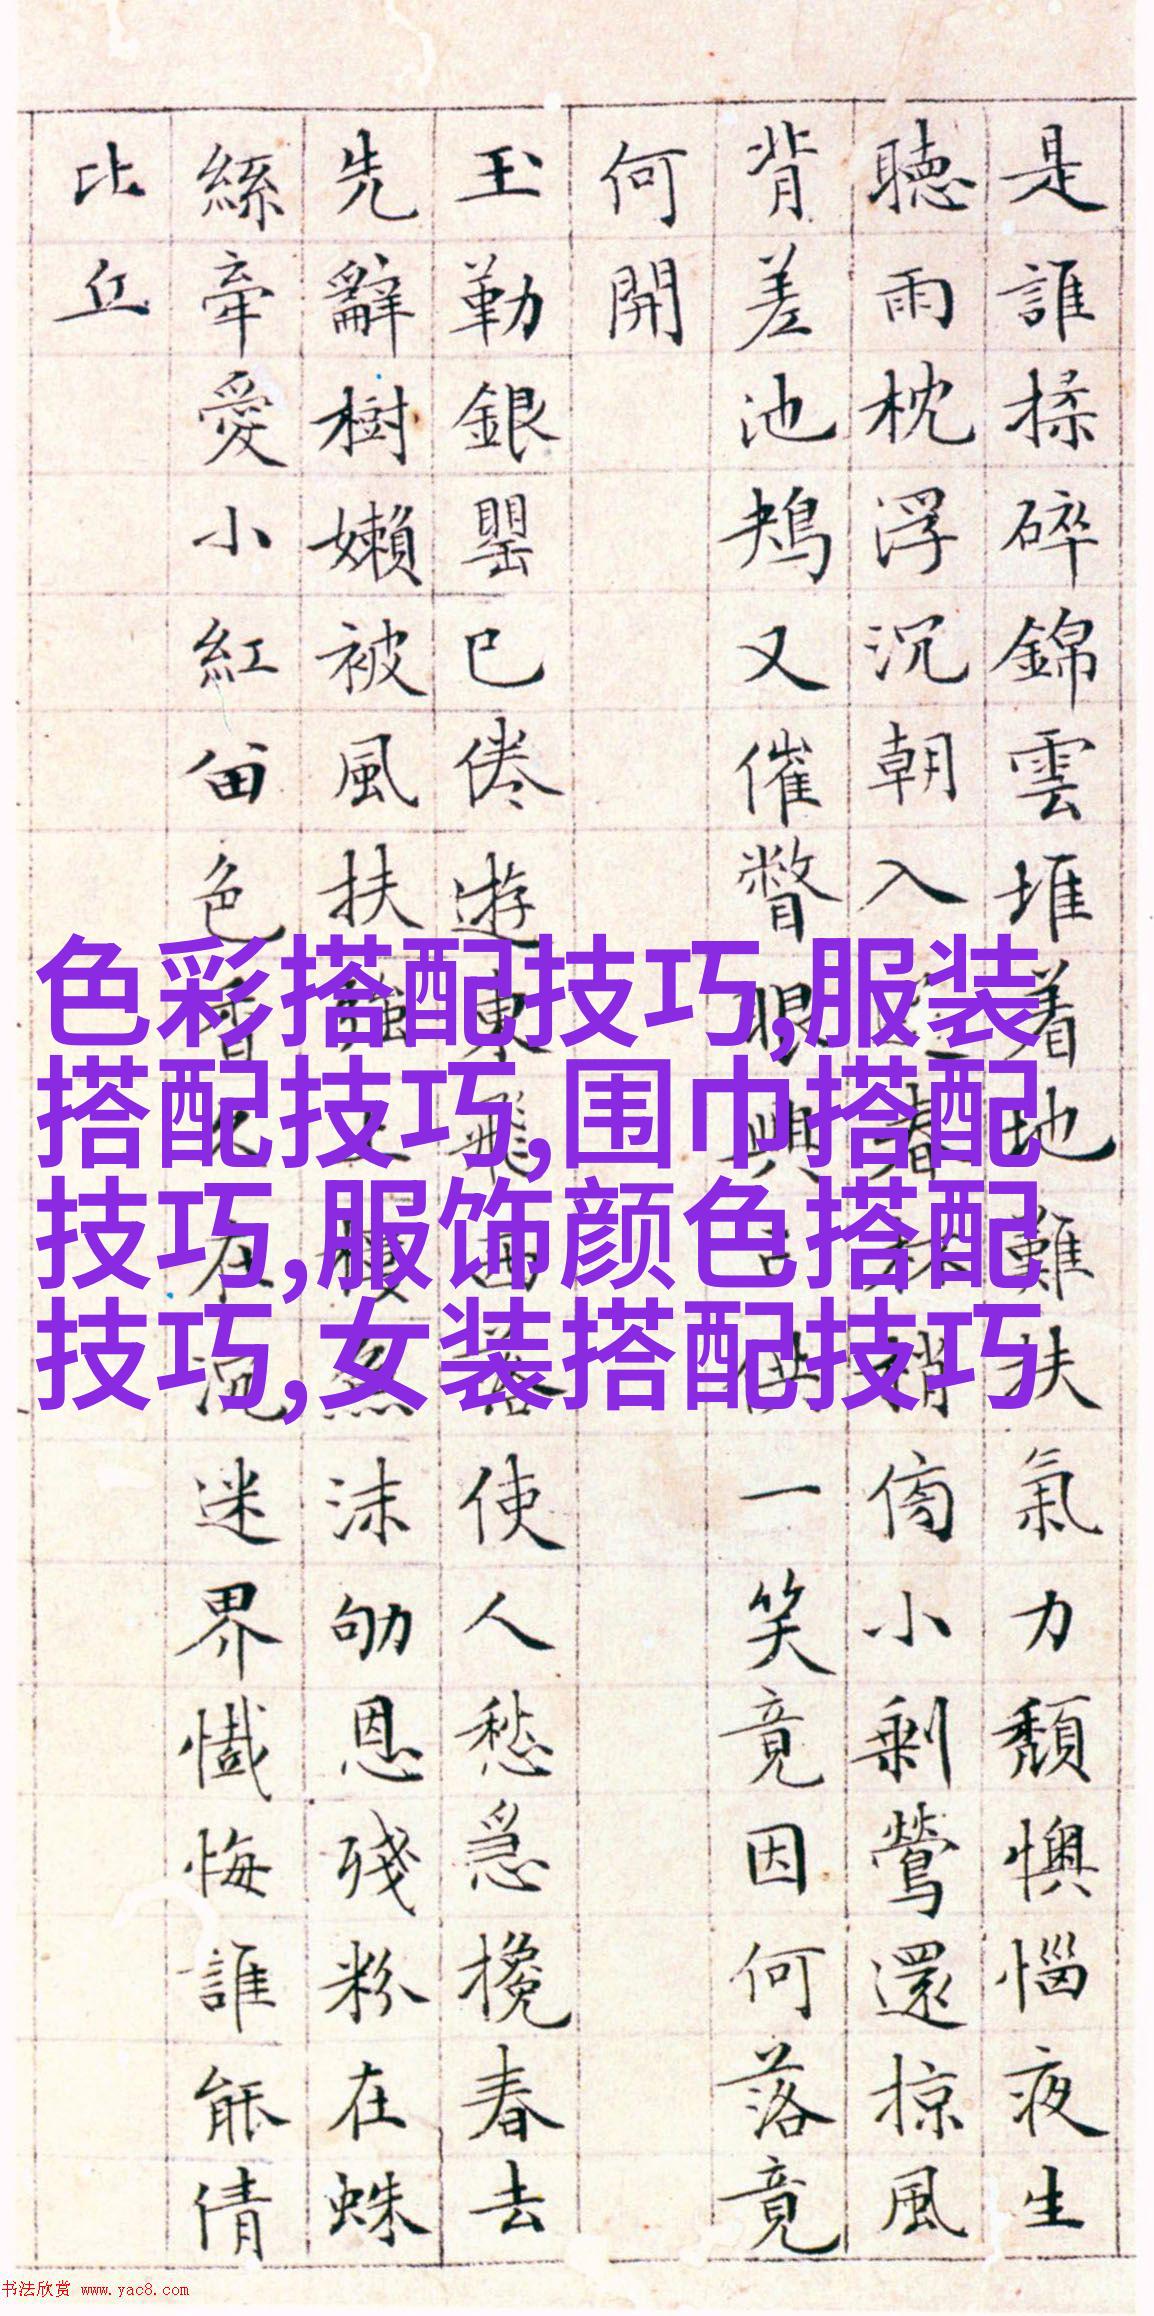 是誰揉碎錦雲堆着地難扶氣力頹懊惱夜生
聽雨枕浮沉朝入春林梢傍小剩鶯還掠風
背差池鳺又催瞥眼興亡供一笑竟因何落竟
何開
玉勒銀罌已倦遊東飛西落使人愁急攙春去
先辭樹嬾被風扶強上樓魚沫劬恩殘粉在蛛
絲牽愛小紅留色香久在沉迷界懺悔誰能倩
比丘
色彩搭配技巧,服装
搭配技巧,围巾搭配
技巧,服饰颜色搭配
技巧,女装搭配技巧
书法欣赏 www.yac8.com